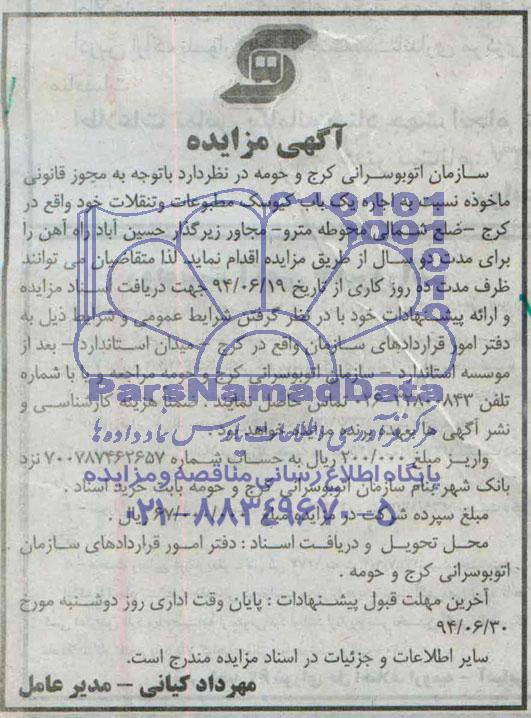 آگهی مزایده
سازمان اتوبوسرانی کرج و حومه در نظردارد باتوجه به مجوز قانونی
ماخوذه نسبت به اجاره یک باب کیوسک مطبوعات وتنقلات خود واقع در
کرج –ضلع شمالی محوطه مترو– مجاور زیرگذر حسین آباد راه آهن را
برای مدت دو سال از طریق مزایده اقدام نماید. لذا متقاضیان می توانند
ظرف مدت ده روز کاری از تاریخ ۹۴/۰۶/۱۹ جهت دریافت اسناد مزایده
و ارائه پیشنهادات خود با در نظر گرفتن شرایط عمومی و شرایط ذیل به
دفتر امور قراردادهای سازمان واقع در کرج – میدان استاندارد – بعد از
موسسه استاندارد – سازمان اتوبوسرانی کرج و حومه مراجعه و یا با شماره
تلفن تماس حاصل نمایند. ضمنا هزینه کارشناسی و
نشر آگهی ها بعهده برنده مزایده خواهد بود.
واریز مبلغ ۲۰۰/۰۰۰ ریال به حساب شماره ۷۰۰۷۸۷۴۶۲۶۵۷ نزد
بانک شهر بنام سازمان اتوبوسرانی کرج و حومه بابت خرید اسناد
مبلغ سپرده شرکت در مزایده مبلغ ریال.
محل تحویل و دریافت اسناد : دفتر امور قراردادهای سازمان
اتوبوسرانی کرج و حومه .
آخرین مهلت قبول پیشنهادات : پایان وقت اداری روز دوشنبه مورخ
۹۴/۰۶/۳۰
سایر اطلاعات و جزئیات در اسناد مزایده مندرج است.
مهرداد کیانی – مدیر عامل
ParsNamadData
مرکز فرآوری اطلاعات پارس نماد داده ها
پایگاه اطلاع رسانی مناقصه و مزایده
۰۲۱-۸۸۳۴۹۶۷۰-۵